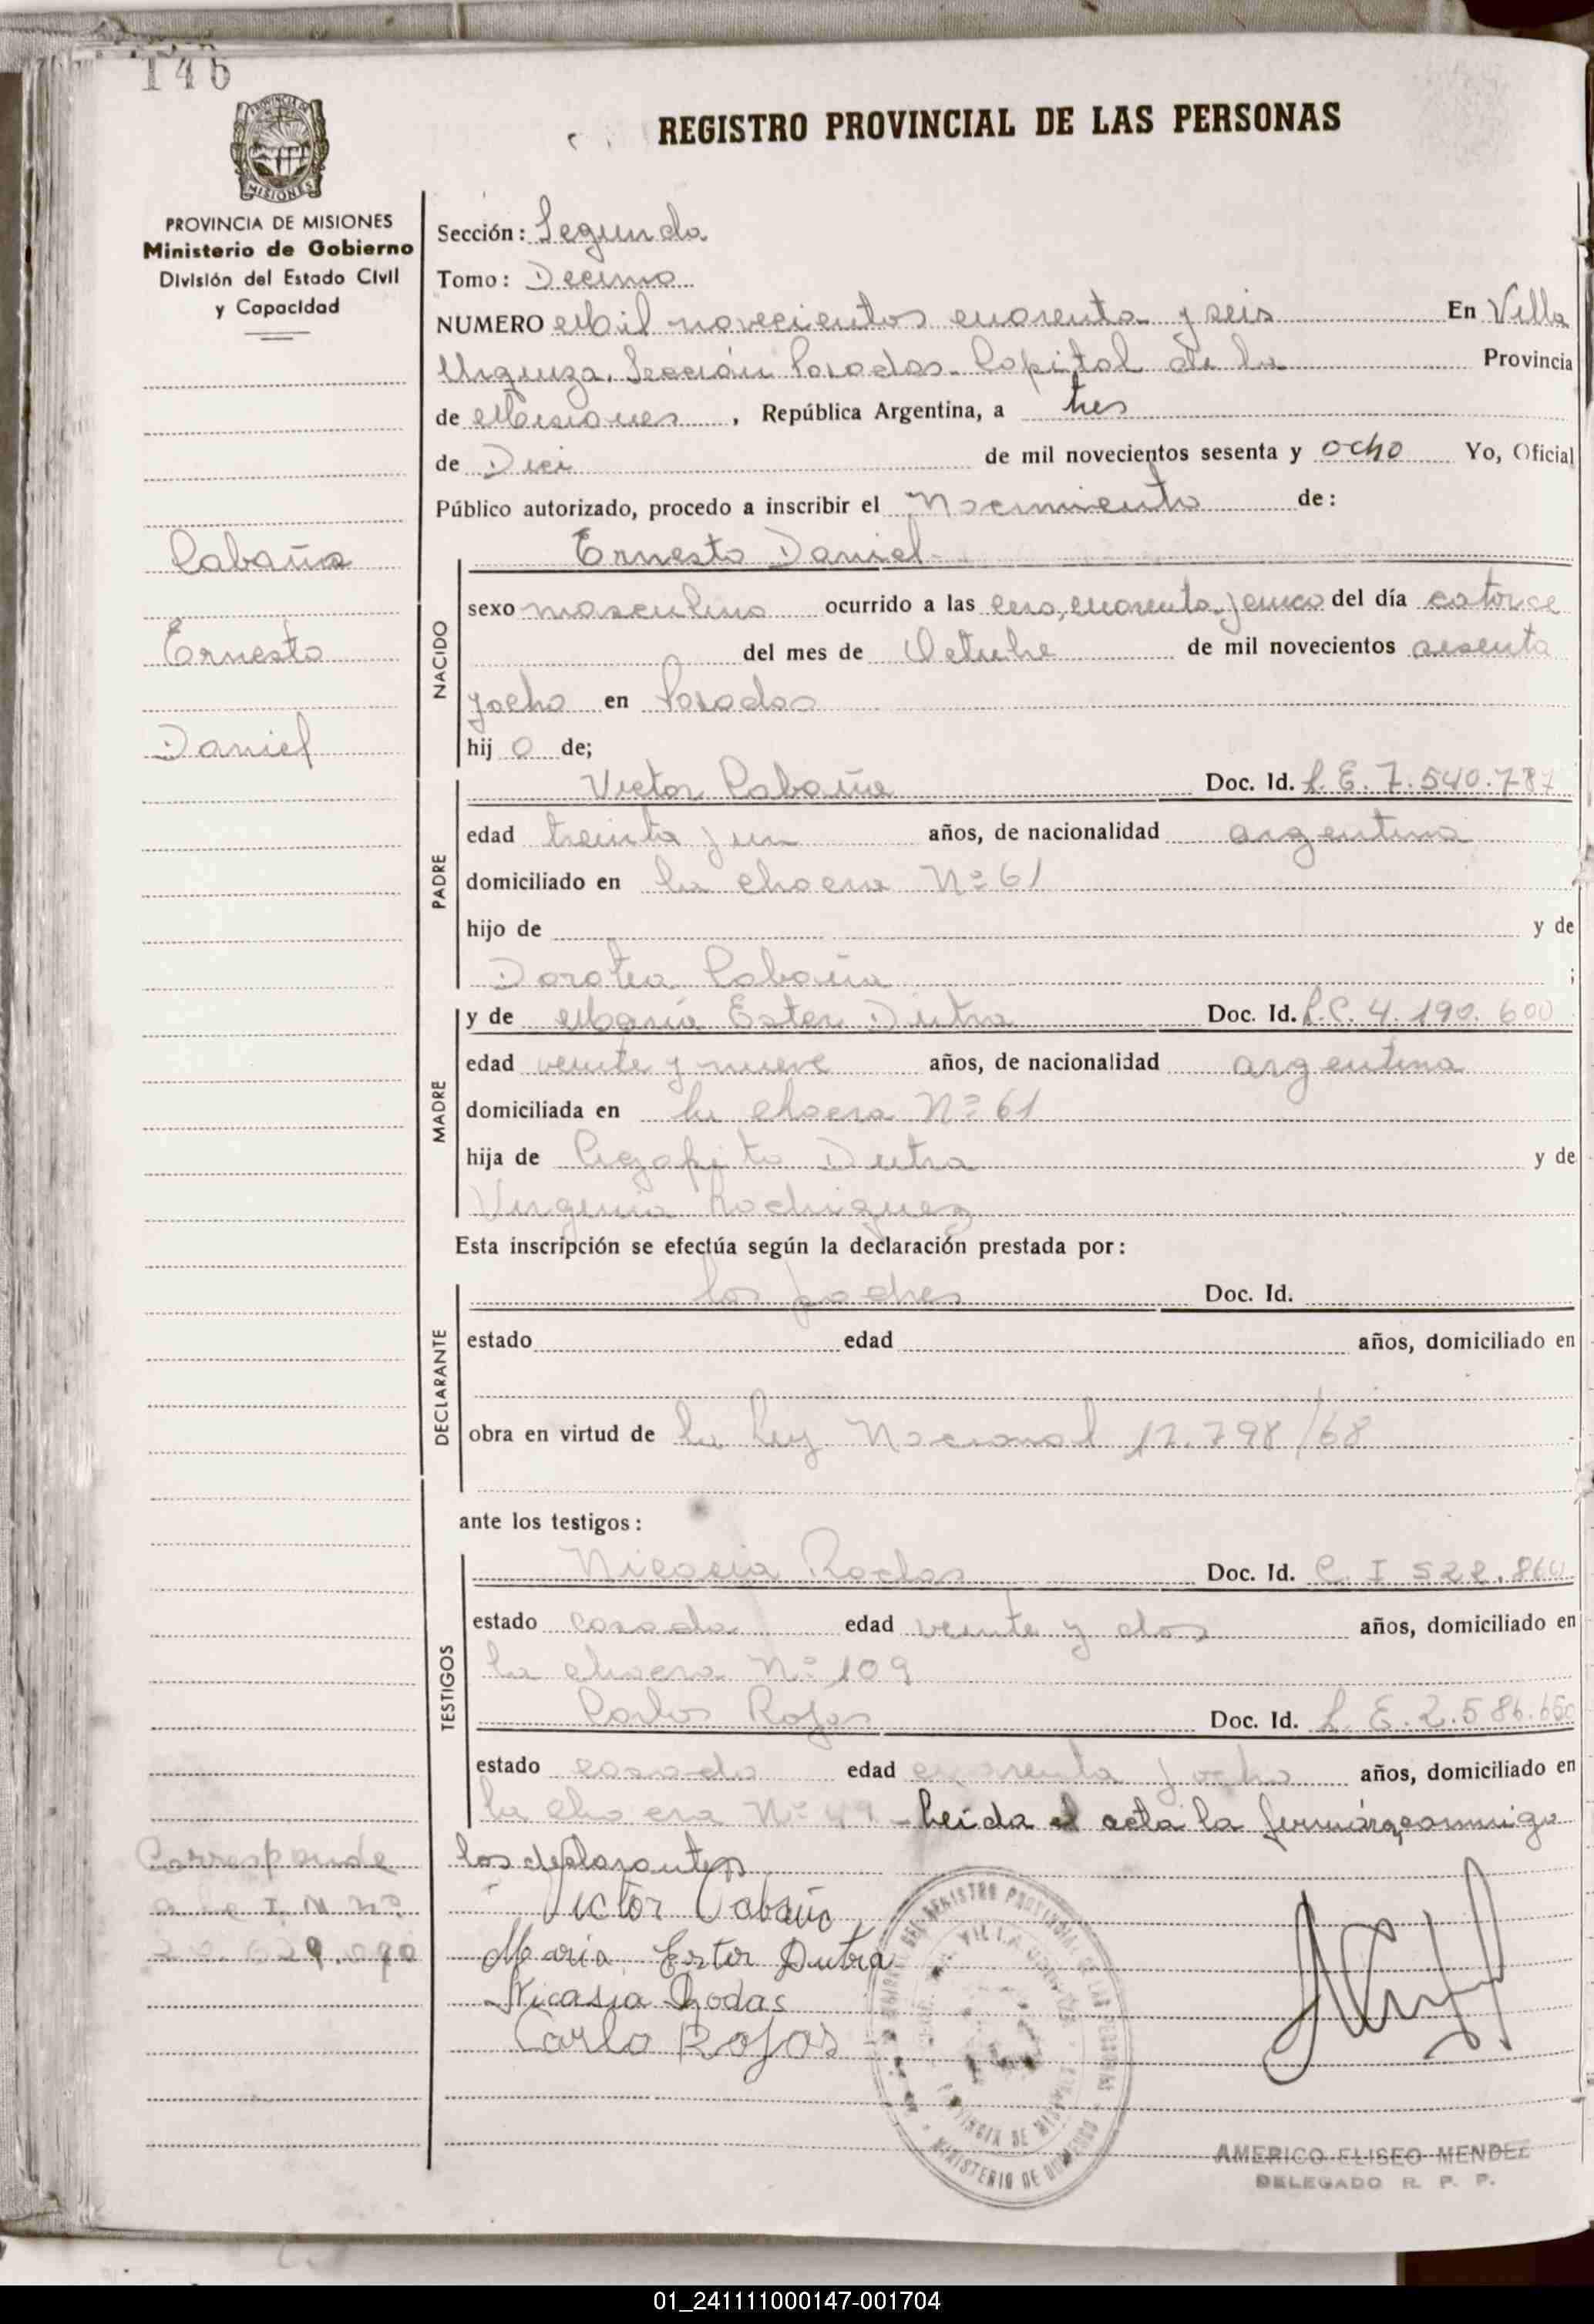 146
REGISTRO PROVINCIAL DE LAS PERSONAS
PROVINCIA DE MISIONES
Ministerio de Gobierno
División del Estado Civil
y Capacidad
Sección: Segunda
Tomo: Decimo
NUMERO Mil novecientos cuarenta y seis En Villa
Urquiza, Sección Posadas Capital de la Provincia
de Misiones, República Argentina, a tres
de Dici de mil novecientos sesenta y ocho Yo, Oficial
Público autorizado, procedo a inscribir el Nacimiento de:
Cabaña
Ernesto
Daniel
NACIDO
Ernesto Daniel
sexo masculino ocurrido a las cero, cuarenta y cinco del día catorce
del mes de Octubre de mil novecientos sesenta
y ocho en Posadas
hij o de;
PADRE
Victor Cabaña Doc. Id. L.E. 7.540.787
edad treinta y un años, de nacionalidad argentina
domiciliado en la chacra Nº 61
hijo de y de
Dorotea Cabaña ;
MADRE
y de Maria Ester Dutra Doc. Id. L.C. 4.190.600
edad veinte y nueve años, de nacionalidad argentina
domiciliada en la chacra Nº 61
hija de Agapito Dutra y de
Virginia Rodriguez
Esta inscripción se efectúa según la declaración prestada por:
DECLARANTE
los padres Doc. Id.
estado edad años, domiciliado en
obra en virtud de la Ley Nacional 17.798/68
ante los testigos:
TESTIGOS
Nicasia Rodas Doc. Id. C. I 522.860
estado casada edad veinte y dos años, domiciliado en
la chacra Nº 109
Carlos Rojas Doc. Id. L. E. 2.586.650
estado casado edad cuarenta y ocho años, domiciliado en
la chacra Nº 49 - Leida el acta la firmáron conmigo
los declarantes
Corresponde
a la I. M. Nº
20.629.090
Victor Cabaña
Maria Ester Dutra
Nicasia Rodas
Carlo Rojas
REGISTRO PROVINCIAL DE LAS PERSONAS
VILLA URQUIZA
PROVINCIA DE MISIONES
MINISTERIO DE GOBIERNO
AMERICO ELISEO MENDEZ
DELEGADO R. P. P.
01_241111000147-001704